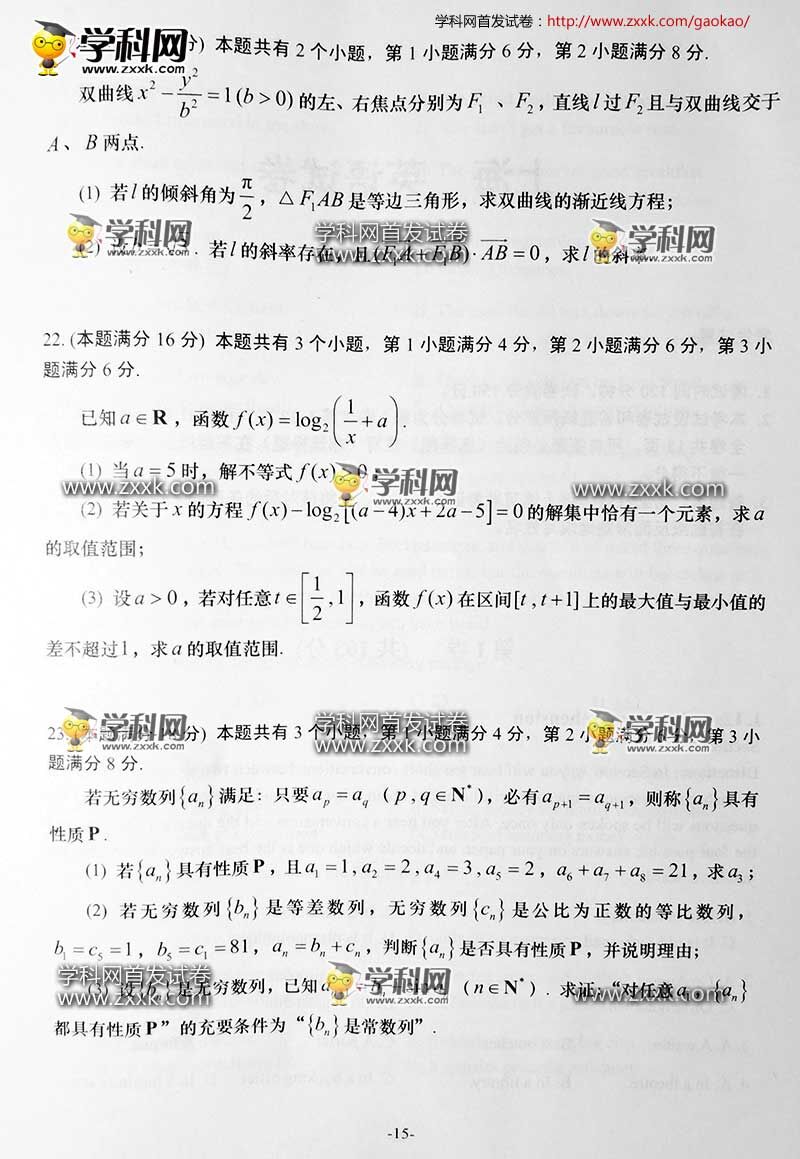 学科网首发试卷：http://www.zxxk.com/gaokao/
学科网
zxxk.com
分) 本题共有 2 个小题，第 1 小题满分 6 分，第 2 小题满分 8 分.
双曲线 x² − y²/b² = 1(b > 0) 的左、右焦点分别为 F₁ 、F₂，直线 l 过 F₂ 且与双曲线交于
A、B 两点.
(1) 若 l 的倾斜角为 π/2，△F₁AB 是等边三角形，求双曲线的渐近线方程；
学科网
zxxk.com
学科网首发试卷
www.zxxk.com
学科网
zxxk.com
(2) 若 l 的斜率存在，且 (F₁A + F₁B)·AB = 0，求 l 的斜率
22. (本题满分 16 分) 本题共有 3 个小题，第 1 小题满分 4 分，第 2 小题满分 6 分，第 3 小
题满分 6 分.
已知 a ∈ R，函数 f(x) = log₂(1/x + a).
(1) 当 a = 5 时，解不等式 f(x) > 0
www.zxxk.com
学科网
zxxk.com
www.zxxk.com
(2) 若关于 x 的方程 f(x) − log₂[(a − 4)x + 2a − 5] = 0 的解集中恰有一个元素，求 a
的取值范围；
(3) 设 a > 0，若对任意 t ∈ [1/2, 1]，函数 f(x) 在区间 [t , t + 1] 上的最大值与最小值的
差不超过1，求 a 的取值范围.
学科网
zxxk.com
学科网首发试卷
www.zxxk.com
学科网
zxxk.com
23. 分) 本题共有 3 个小题，第 1 小题满分 4 分，第 2 小题满分 分，第 3 小
题满分 8 分.
若无穷数列{aₙ}满足：只要 aₚ = a_q ( p , q ∈ N* )，必有 aₚ₊₁ = a_q₊₁，则称{aₙ}具有
性质 P .
(1) 若{aₙ}具有性质 P，且 a₁ = 1, a₂ = 2, a₄ = 3, a₅ = 2，a₆ + a₇ + a₈ = 21，求 a₃；
(2) 若无穷数列{bₙ}是等差数列，无穷数列{cₙ}是公比为正数的等比数列，
b₁ = c₅ = 1，b₅ = c₁ = 81，aₙ = bₙ + cₙ，判断{aₙ}是否具有性质 P，并说明理由；
学科网首发试卷
www.zxxk.com
学科网
zxxk.com
学科网首发试卷
www.zxxk.com
(3) 设{bₙ}是无穷数列，已知 (n ∈ N*) . 求证：“对任意 a₁，{aₙ}
都具有性质 P”的充要条件为“{bₙ}是常数列”.
-15-